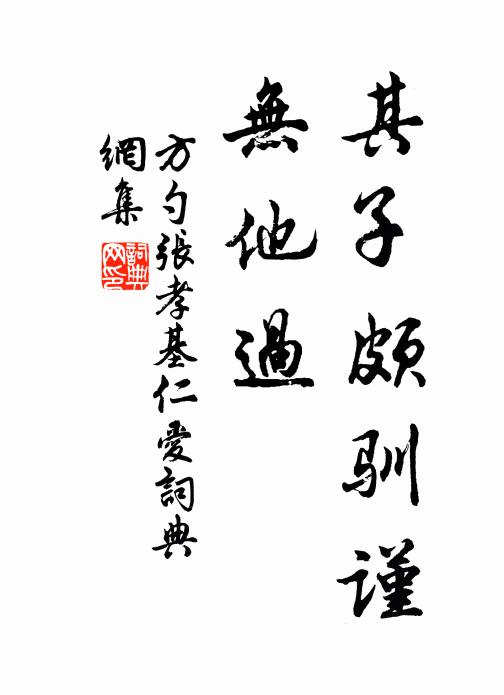 其子頗馴謹
無他過
方勺張孝基仁愛詞典
網集
詞典网印